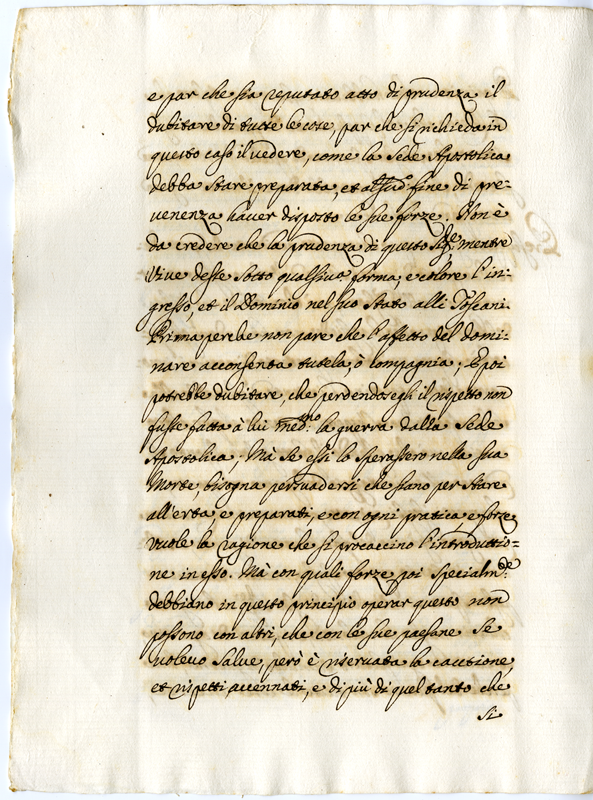 e par che sia reputato atto di prudenza il
dubitare di tutte le cose, par che si richieda in
questo caso il vedere, come la Sede Apostolica
debba stare preparata, et al fine di pre-
venenza haver disposto le sue forze. Non è
da credere che la prudenza di questo mentre
vive desse sotto qualsiva forma, e colore l'in-
gresso, et il Dominio nel suo Stato alli Toscani.
Prima perche non pare che l'affetto del domi-
nare acconsenta tutela, ò compagnia; E poi
potrebbe dubitare, che perdendosegli il rispetto non
fusse fatta à lui med.mo la guerra dalla Sede
Apostolica; Mà se essi lo sperassero nella sua
Morte, bisogna persuadersi che siano per stare
all'erta, e preparati, e con ogni pratica, e forze
vuole la ragione che si procaccino l'introduttio=
ne in esso. Mà con quali forze poi specialm.te
debbiano in questo principio operar questo non
possono con altri, che con le sue paesane se
volevo salve, però è riservata la cautione,
et rispetti accennati, e di più di quel tanto che
si